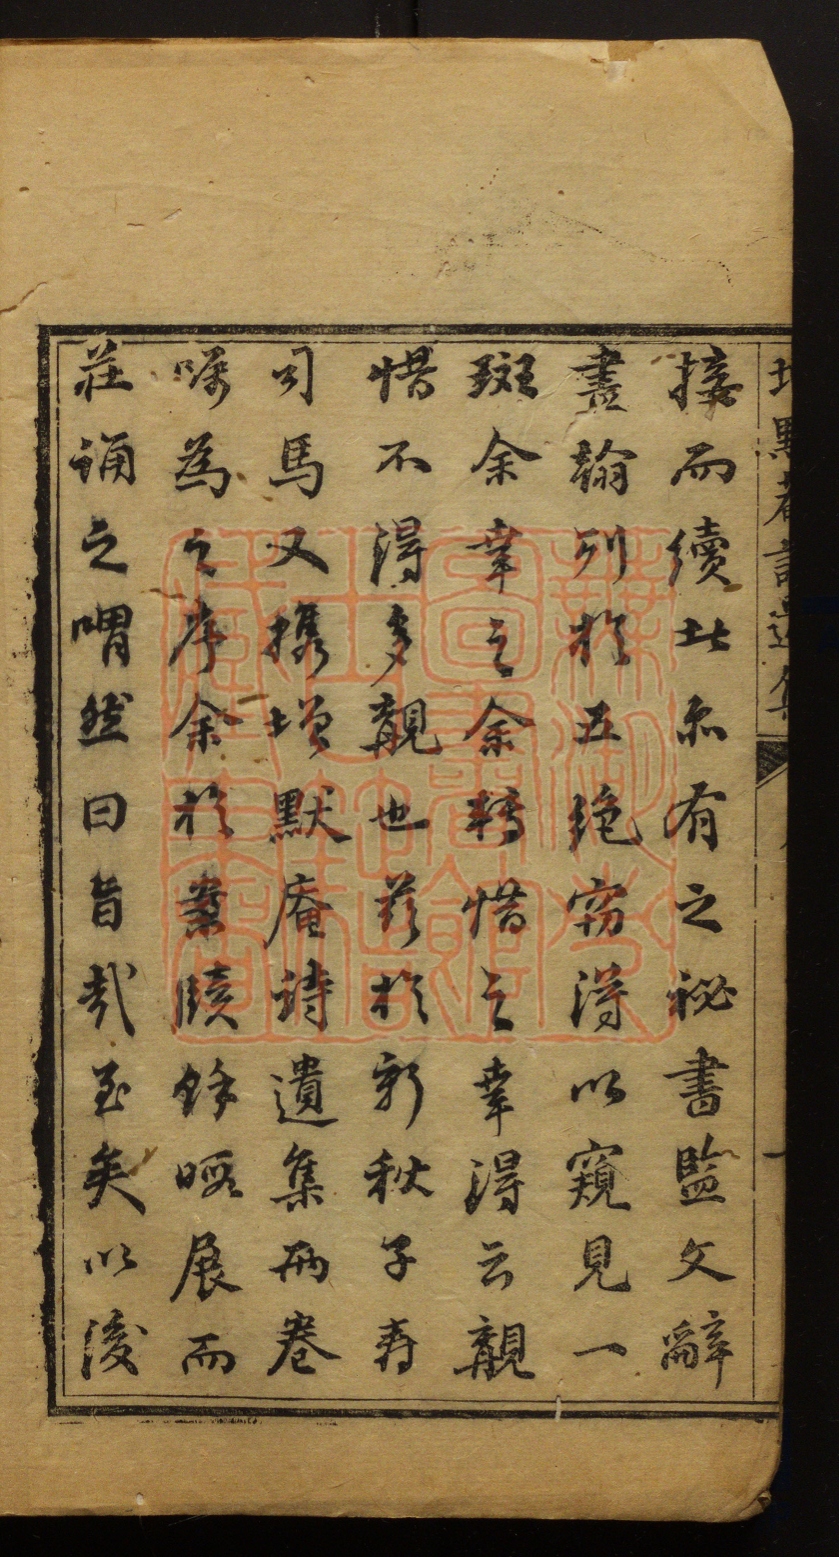 增默菴詩遺集 一
接而續此亦有之祕書監文辭
盡翰列於五絶窃得以窺見一
斑余幸之余轉惜之幸得云覯
惜不得多覯也茲於新秋子壽
司馬又攜增默庵詩遺集兩卷
嘱為之序余於案牘餘暇展而
莊誦之喟然曰旨哉至矣以後